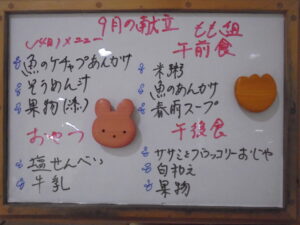 9月の献立
もも組
14日(メニュー
魚のケチャップあんかけ
そうめん汁
果物(添)
おやつ
塩せんべい
牛乳
午前食
米粥
魚のあんかけ
春雨スープ
午後食
ササミとブロッコリーおじや
白和え
果物